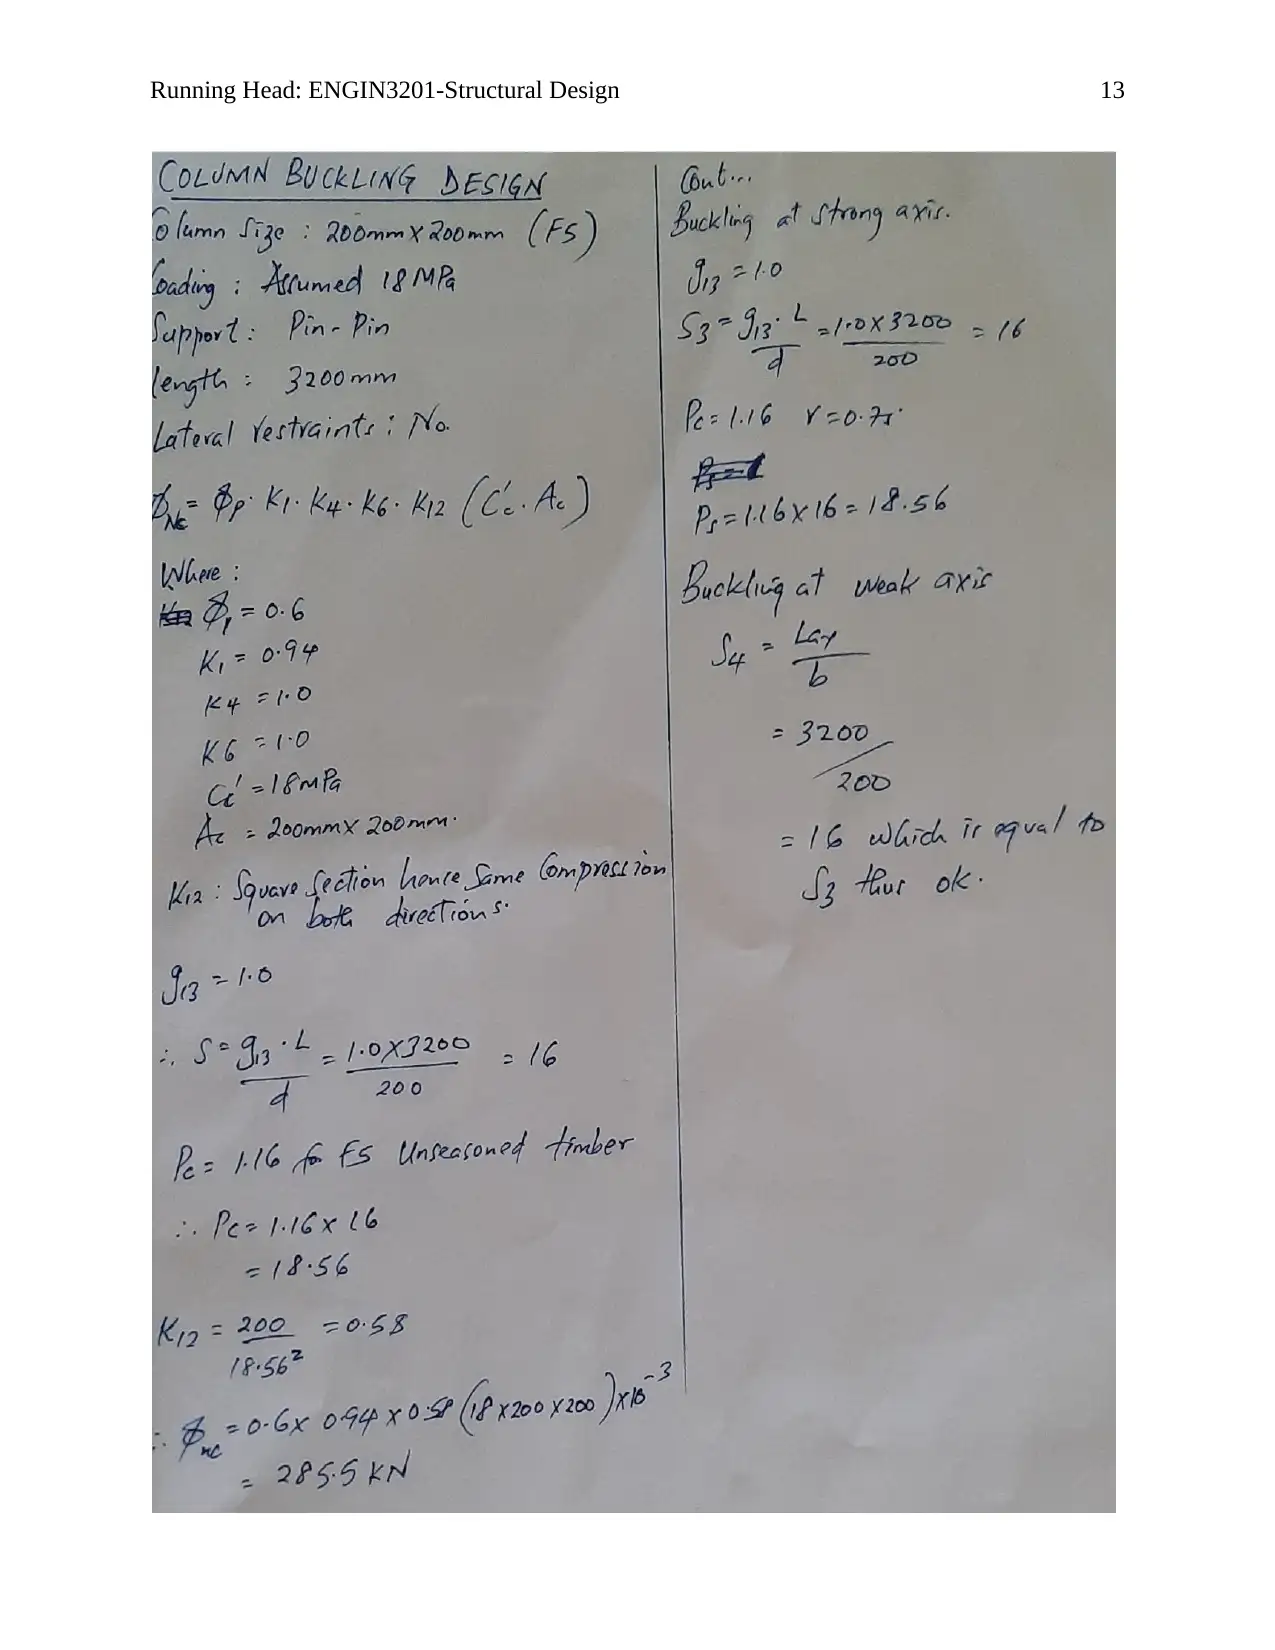 Running Head: ENGIN3201-Structural Design 13
COLUMN BUCKLING DESIGN
Column Size : 200mm X 200mm (F5)
Loading : Assumed 18 MPa
Support : Pin - Pin
length : 3200mm
Lateral restraints : No.
ϕNc = ϕp · K1 · K4 · K6 · K12 (C'c · Ac)
Where :
ϕ1 = 0.6
K1 = 0.94
K4 = 1.0
K6 = 1.0
Cc' = 18MPa
Ac = 200mm X 200mm.
K12 : Square Section hence Same Compression
on both directions.
g13 = 1.0
∴ S = g13 · L / d = 1.0X3200 / 200 = 16
Pc = 1.16 for F5 Unseasoned timber
∴ Pc = 1.16 x 16
= 18.56
K12 = 200 / 18.56² = 0.58
∴ ϕnc = 0.6x 0.94 x 0.58 (18 X 200 X 200) x10⁻³
= 285.5 KN
Cont...
Buckling at Strong axis.
g13 = 1.0
S3 = g13 · L / d = 1.0 X 3200 / 200 = 16
Pc = 1.16 r = 0.75.
Ps = 1.16 x 16 = 18.56
Buckling at weak axis
S4 = Lay / b
= 3200 / 200
= 16 which is equal to
S3 thus ok.